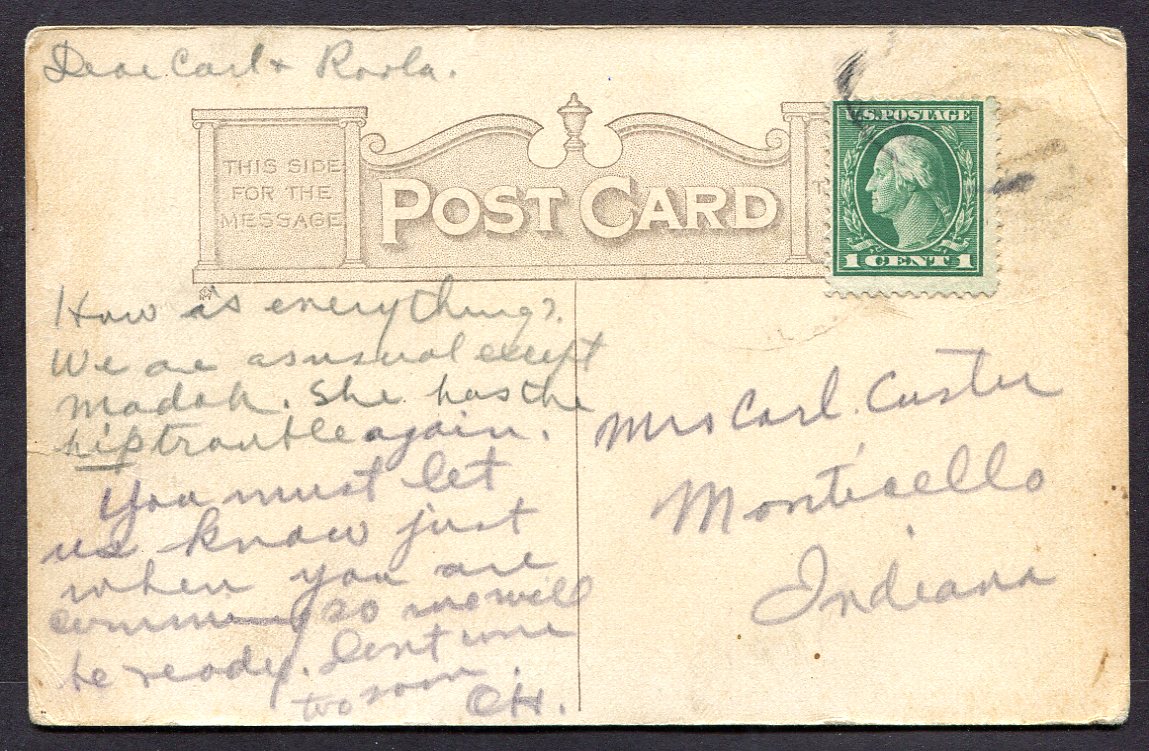 Dear Carl + Rosla.
THIS SIDE
FOR THE
MESSAGE
POST CARD
T
U.S. POSTAGE
1 CENT 1
How is everything?
We are as usual except
Madah. She has the
hip trouble again.
You must let
us know just
when you are
comming so we will
be ready. Dont
too soon.
CH.
Mrs Carl. Custer
Monticello
Indiana